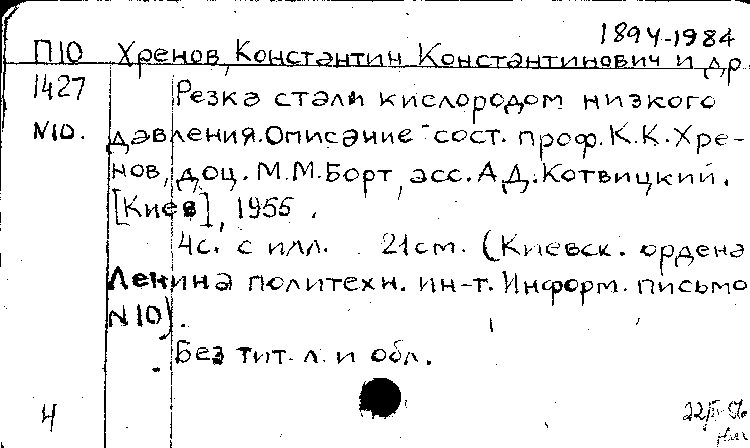 1894-1984
П10 Хренов, Константин Константинович и др.
1427 Резка стали кислородом низкого
N10. давления. Описание сост. проф. К.К. Хре-
нов, доц. М.М. Борт, асс. А.Д. Котвицкий.
[Киев], 1955.
4с. с илл. 21см. (Киевск. ордена
Ленина политехн. ин-т. Информ. письмо
N10).
Без тит. л. и обл.
Ч